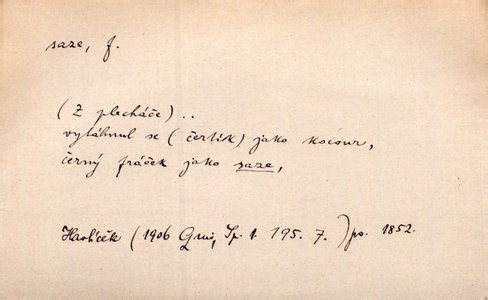 saze, f.
(Z plecháče)..
vytáhnul se (čertík) jako kocour,
černý fráček jako saze,
Havlíček (1906 Quis, Sp. 1. 195. 7.) po. 1852.